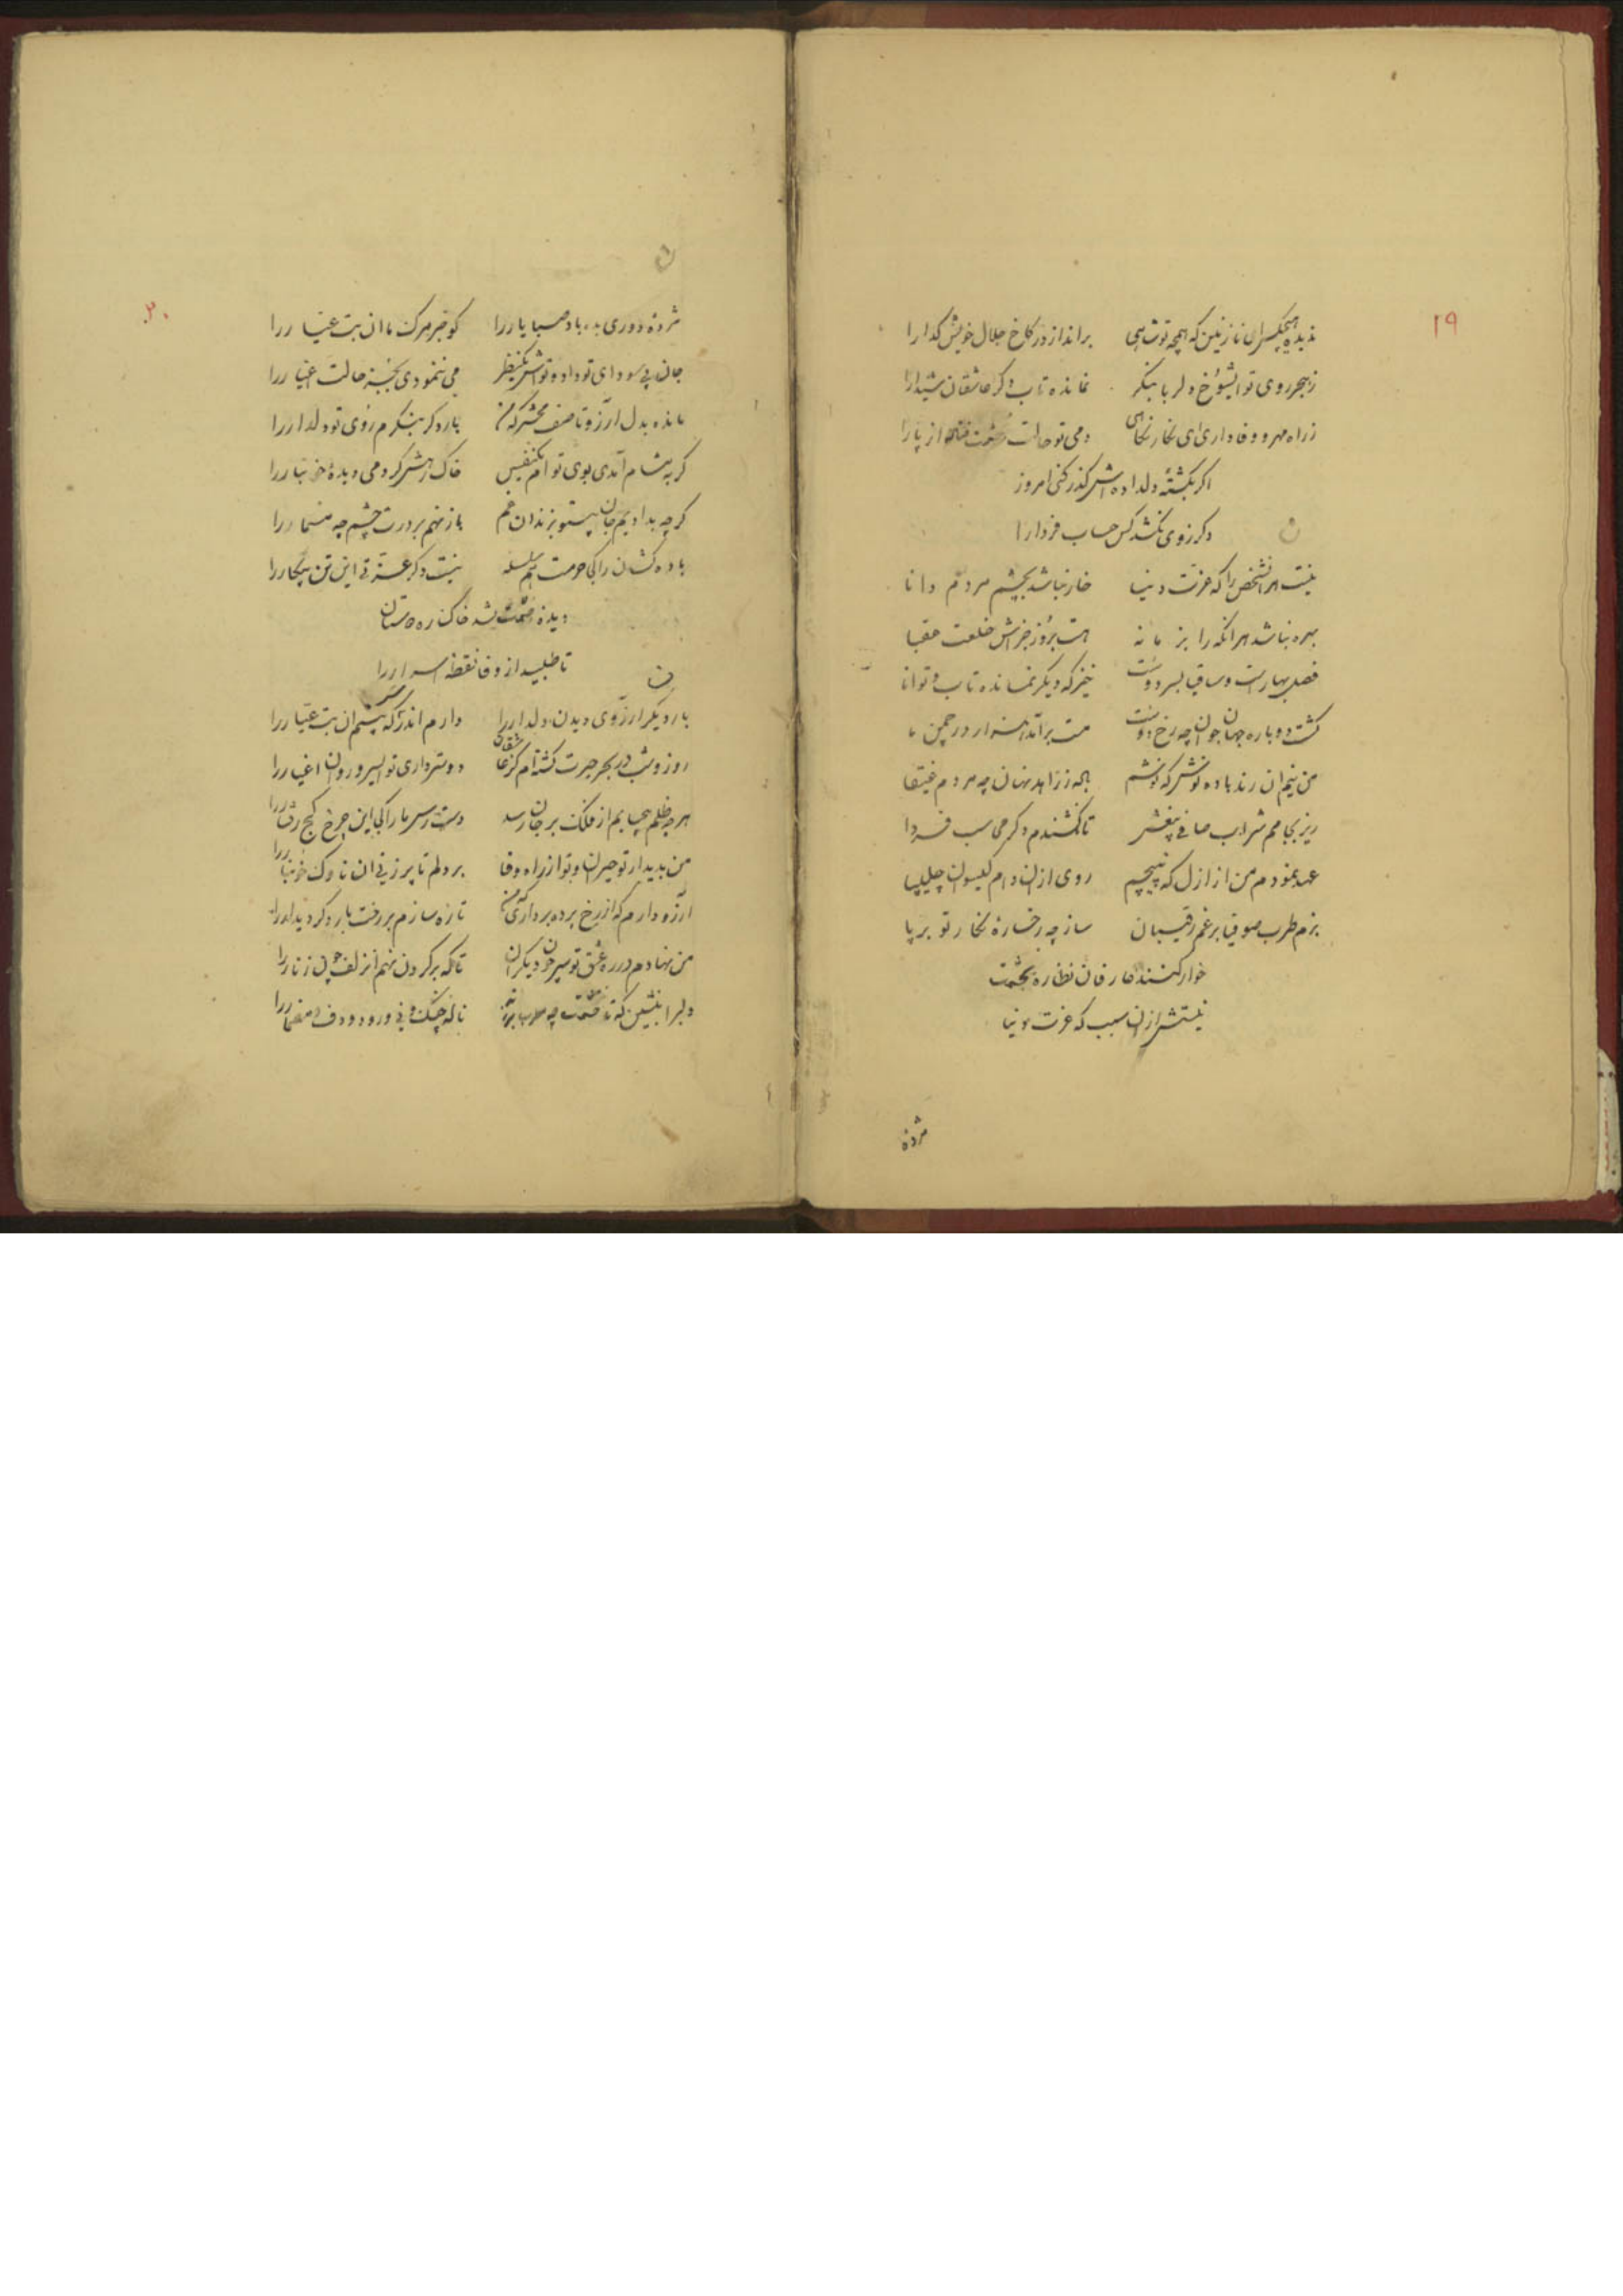 ۱۹
ندیده هیچکس ای نازنین که همچه تو شاهی براندازد ز کاخ جلال خویش گدا را
ز هجر روی تو ای شوخ دلربا بنگر نمانده تاب دگر عاشقان شیدا را
ز راه مهر و وفاداری ای نگار نگاهی دمی تو حالت حشمت فتاده از پا را
اگر بکشته دلداده‌اش گذر کنی امروز
دگر ز وی نکشد کس حساب فردا را
ن
نیست هر انشخص را که عزت دنیا خار نباشد بچشم مردم دانا
بهره نباشد هر انکه را بزمانه هست بروز جزاش خلعت عقبا
فصل بهار است و ساقیا بسر دوست خیز که دیگر نمانده تاب و توانا
گشت دوباره جهان جوان چه رخ دوست مست برآمد هزار در چمن ما
من نیم ان رند باده نوش که نوشم باله ز زاهد نهان چه مردم
ریز بجامم شراب صافی بیغش تا نکشندم دگر محاسب فردا
عهد نمودم من از ازل که نپیچم روی از ان دام گیسوان چلیپا
بزم طرب صوفیا برغم رقیبان ساز چه رخساره نگار تو برپا
خوار کنند عارفان نظاره بحشمت
نیستش از ان سبب که عزت دنیا
مژده
۲۰
ن
مژده دوری بده باد صبا یار را گو خبر مرگ ما ان بت عیار را
جان پی سودای تو داد و تواش یکنظر می ننمودی ببین حالت اغیار را
مانده بدل آرزو تا صف محشر که من بار دگر بنگرم روی تو دلدار را
گر بمشام آمدی بوی تو ام یکنفس خاک رهش کردمی دیده خونبار را
گرچه بدادیم جان بیتو بزندان غم باز نهم بر درت چشم چه مسمار را
باده کشان را کی حرمت هم سلسله نیست دگر عزتی این تن بیکار را
دیده حشمت بشد خاک ره دوستان
تا طلبید از وفا نقطه اسرار را
ن
بار دیگر آرزوی دیدن دلدار را دارم اندر سر که بینم ان بت عیار را
روز و شب در بحر حیرت گشته‌ام کز عاشقان دوستر داری تو ای سرو روان اغیار را
هر چه ظلم بیحسابم از فلک بر جان رسد دست رس ما را کی این چرخ کج رفتار را
من بدیدار تو حیران و تو از راه وفا بر دلم تا پر زنی ان ناوک خونبار را
آرزو دارم که از رخ پرده برداری تا تازه سازم بر رخت بار دگر دیدار را
من نهادم در ره عشق تو سر چون دیگران تا که بر گردن نهم از زلف چون زنار را
دلبرا بنشین که تا حشمت چه ناله چنگ و نی و رود و دف و مضمار را